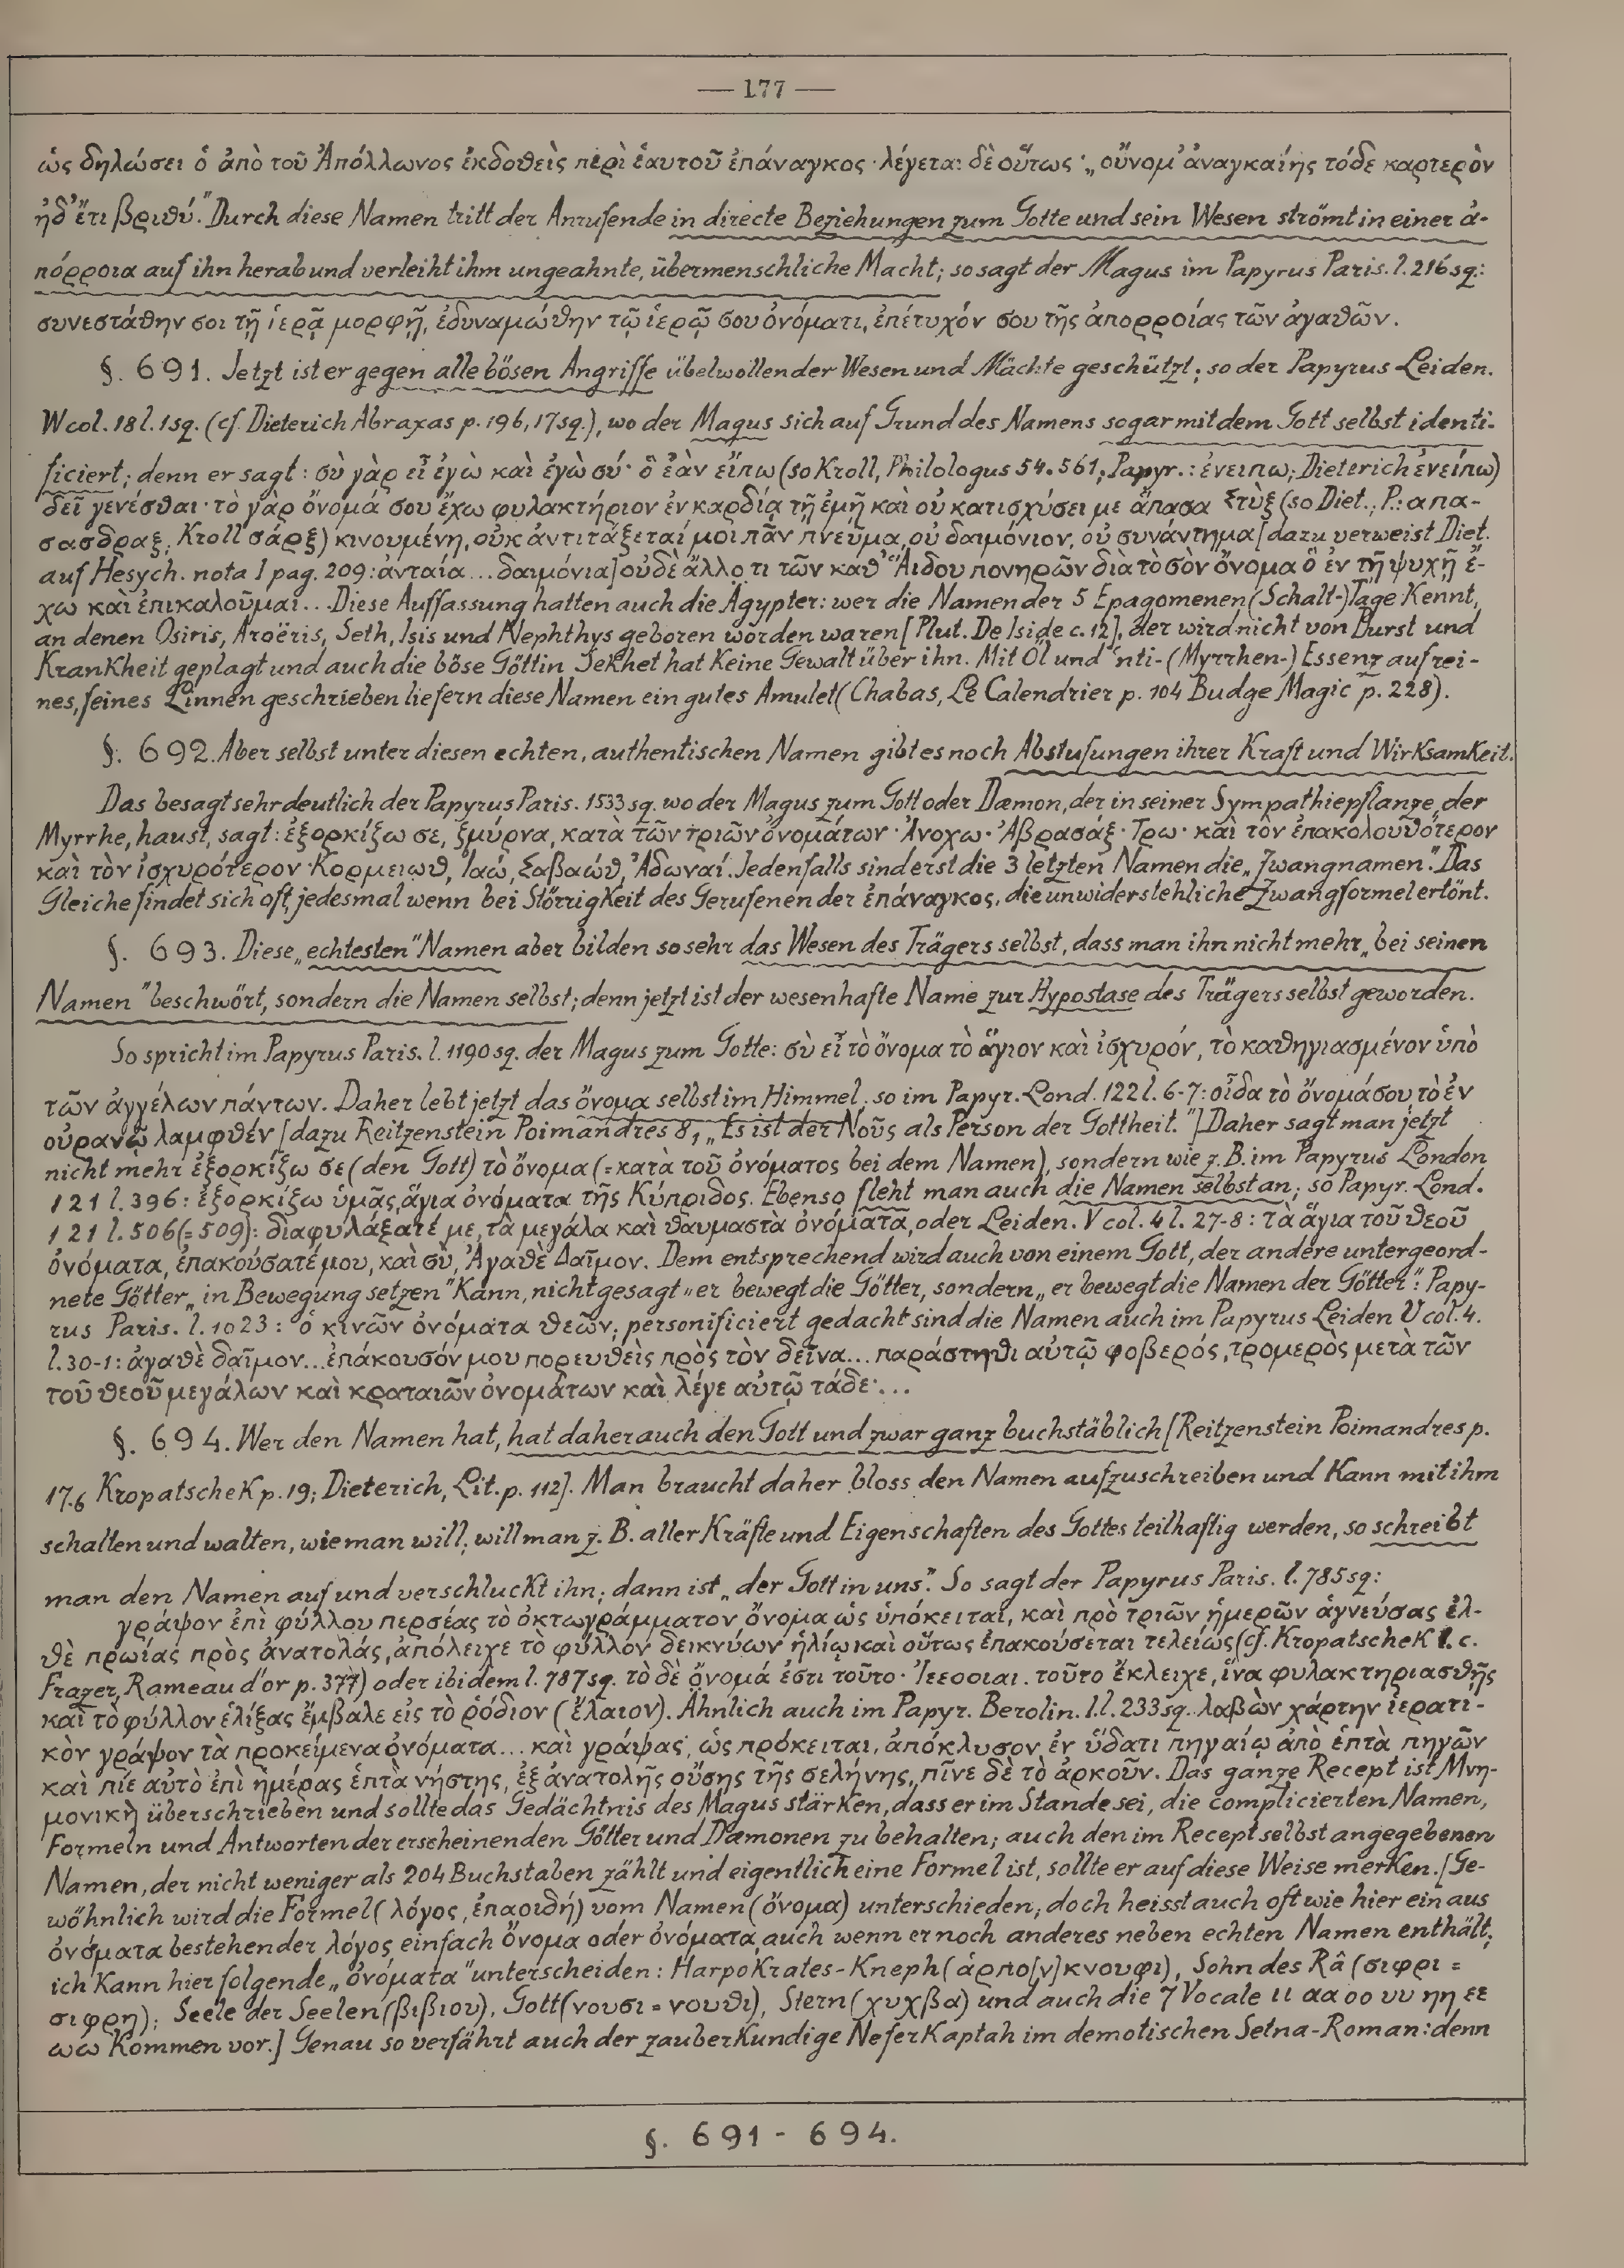 — 177 —
ὡς δηλώσει ὁ ἀπὸ τοῦ Ἀπόλλωνος ἐκδοθεὶς περὶ ἑαυτοῦ ἐπάναγκος · λέγεται δὲ οὕτως · „οὔνομ' ἀναγκαίης τόδε καρτερὸν
ἠδ' ἔτι βριθύ." Durch diese Namen tritt der Anrufende in directe Beziehungen zum Gotte und sein Wesen strömt in einer ἀ-
πόρροια auf ihn herab und verleiht ihm ungeahnte, übermenschliche Macht; so sagt der Magus im Papyrus Paris. l. 216 sq.:
συνεστάθην σοι τῇ ἱερᾷ μορφῇ, ἐδυναμώθην τῷ ἱερῷ σου ὀνόματι, ἐπέτυχόν σου τῆς ἀπορροίας τῶν ἀγαθῶν.
§. 691. Jetzt ist er gegen alle bösen Angriffe übelwollender Wesen und Mächte geschützt; so der Papyrus Leiden.
W col. 18 l. 1 sq. (cf. Dieterich Abraxas p. 196, 17 sq.), wo der Magus sich auf Grund des Namens sogar mit dem Gott selbst identi-
ficiert; denn er sagt: σὺ γὰρ εἶ ἐγὼ καὶ ἐγὼ σύ · ὃ ἐὰν εἴπω (so Kroll, Philologus 54. 561; Papyr.: ἐνειπω; Dieterich ἐνείπω)
δεῖ γενέσθαι · τὸ γὰρ ὄνομά σου ἔχω φυλακτήριον ἐν καρδίᾳ τῇ ἐμῇ καὶ οὐ κατισχύσει με ἅπασα Στὺξ (so Diet., P.: απα-
σασδραξ, Kroll σάρξ) κινουμένη, οὐκ ἀντιτάξεταί μοι πᾶν πνεῦμα, οὐ δαιμόνιον, οὐ συνάντημα [dazu verweist Diet.
auf Hesych. nota 1 pag. 209: ἀνταία ... δαιμόνια] οὐδὲ ἄλλο τι τῶν καθ' Ἅιδου πονηρῶν διὰ τὸ σὸν ὄνομα ὃ ἐν τῇ ψυχῇ ἔ-
χω καὶ ἐπικαλοῦμαι ... Diese Auffassung hatten auch die Ägypter: wer die Namen der 5 Epagomenen (Schalt-) Tage kennt,
an denen Osiris, Aroëris, Seth, Isis und Nephthys geboren worden waren [Plut. De Iside c. 12], der wird nicht von Durst und
Krankheit geplagt und auch die böse Göttin Sekhet hat keine Gewalt über ihn. Mit Öl und ʿnti- (Myrrhen-) Essenz auf rei-
nes, feines Linnen geschrieben liefern diese Namen ein gutes Amulet (Chabas, Le Calendrier p. 104 Budge Magic p. 228).
§. 692. Aber selbst unter diesen echten, authentischen Namen gibt es noch Abstufungen ihrer Kraft und Wirksamkeit.
Das besagt sehr deutlich der Papyrus Paris. 1533 sq. wo der Magus zum Gott oder Dæmon, der in seiner Sympathiepflanze, der
Myrrhe, haust, sagt: ἐξορκίζω σε, ζμύρνα, κατὰ τῶν τριῶν ὀνομάτων · Ἀνοχω · Ἀβρασάξ · Τρω · καὶ τὸν ἐπακολουθότερον
καὶ τὸν ἰσχυρότερον · Κορμειωθ, Ἰαώ, Σαβαώθ, Ἀδωναί. Jedenfalls sind erst die 3 letzten Namen die „Zwangnamen". Das
Gleiche findet sich oft, jedesmal wenn bei Störrigkeit des Gerufenen der ἐπάναγκος, die unwiderstehliche Zwangformel ertönt.
§. 693. Diese „echtesten" Namen aber bilden so sehr das Wesen des Trägers selbst, dass man ihn nicht mehr „bei seinen
Namen" beschwört, sondern die Namen selbst; denn jetzt ist der wesenhafte Name zur Hypostase des Trägers selbst geworden.
So spricht im Papyrus Paris. l. 1190 sq. der Magus zum Gotte: σὺ εἶ τὸ ὄνομα τὸ ἅγιον καὶ ἰσχυρόν, τὸ καθηγιασμένον ὑπὸ
τῶν ἀγγέλων πάντων. Daher lebt jetzt das ὄνομα selbst im Himmel, so im Papyr. Lond. 122 l. 6-7: οἶδα τὸ ὄνομά σου τὸ ἐν
οὐρανῷ λαμφθέν [dazu Reitzenstein Poimandres 8, „Es ist der Νοῦς als Person der Gottheit."] Daher sagt man jetzt
nicht mehr ἐξορκίζω σε (den Gott) τὸ ὄνομα (= κατὰ τοῦ ὀνόματος bei dem Namen), sondern wie z. B. im Papyrus London
121 l. 396: ἐξορκίζω ὑμᾶς, ἅγια ὀνόματα τῆς Κύπριδος. Ebenso fleht man auch die Namen selbst an; so Papyr. Lond.
121 l. 506 (= 509): διαφυλάξατέ με, τὰ μεγάλα καὶ θαυμαστὰ ὀνόματα, oder Leiden. V col. 4 l. 27-8: τὰ ἅγια τοῦ θεοῦ
ὀνόματα, ἐπακούσατέ μου, καὶ σὺ, Ἀγαθὲ Δαῖμον. Dem entsprechend wird auch von einem Gott, der andere untergeord-
nete Götter „in Bewegung setzen" kann, nicht gesagt „er bewegt die Götter, sondern „er bewegt die Namen der Götter": Papy-
rus Paris. l. 1023: ὁ κινῶν ὀνόματα θεῶν; personificiert gedacht sind die Namen auch im Papyrus Leiden V col. 4.
l. 30-1: ἀγαθὲ δαῖμον ... ἐπάκουσόν μου πορευθεὶς πρὸς τὸν δεῖνα ... παράστηθι αὐτῷ φοβερός, τρομερὸς μετὰ τῶν
τοῦ θεοῦ μεγάλων καὶ κραταιῶν ὀνομάτων καὶ λέγε αὐτῷ τάδε · ...
§. 694. Wer den Namen hat, hat daher auch den Gott und zwar ganz buchstäblich [Reitzenstein Poimandres p.
17.6 Kropatschek p. 19; Dieterich, Lit. p. 112]. Man braucht daher bloss den Namen aufzuschreiben und kann mit ihm
schalten und walten, wie man will; will man z. B. aller Kräfte und Eigenschaften des Gottes teilhaftig werden, so schreibt
man den Namen auf und verschluckt ihn; dann ist „der Gott in uns". So sagt der Papyrus Paris. l. 785 sq:
γράψον ἐπὶ φύλλου περσέας τὸ ὀκτωγράμματον ὄνομα ὡς ὑπόκειται, καὶ πρὸ τριῶν ἡμερῶν ἁγνεύσας ἐλ-
θὲ πρωίας πρὸς ἀνατολάς, ἀπόλειχε τὸ φύλλον δεικνύων ἡλίῳ καὶ οὕτως ἐπακούσεται τελείως (cf. Kropatschek l. c.
Frazer, Rameau d'or p. 377) oder ibidem l. 787 sq. τὸ δὲ ὄνομά ἐστι τοῦτο · Ἰεεοοιαι. τοῦτο ἔκλειχε, ἵνα φυλακτηριασθῇς
καὶ τὸ φύλλον ἑλίξας ἔμβαλε εἰς τὸ ῥόδιον (ἔλαιον). Ähnlich auch im Papyr. Berolin. I. l. 233 sq. λαβὼν χάρτην ἱερατι-
κὸν γράψον τὰ προκείμενα ὀνόματα ... καὶ γράψας, ὡς πρόκειται, ἀπόκλυσον ἐν ὕδατι πηγαίῳ ἀπὸ ἑπτὰ πηγῶν
καὶ πίε αὐτὸ ἐπὶ ἡμέρας ἑπτὰ νήστης, ἐξ ἀνατολῆς οὔσης τῆς σελήνης, πῖνε δὲ τὸ ἀρκοῦν. Das ganze Recept ist Μνη-
μονικὴ überschrieben und sollte das Gedächtnis des Magus stärken, dass er im Stande sei, die complicierten Namen,
Formeln und Antworten der erscheinenden Götter und Dæmonen zu behalten; auch den im Recept selbst angegebenen
Namen, der nicht weniger als 204 Buchstaben zählt und eigentlich eine Formel ist, sollte er auf diese Weise merken. [Ge-
wöhnlich wird die Formel (λόγος, ἐπαοιδή) vom Namen (ὄνομα) unterschieden; doch heisst auch oft wie hier ein aus
ὀνόματα bestehender λόγος einfach ὄνομα oder ὀνόματα, auch wenn er noch anderes neben echten Namen enthält;
ich kann hier folgende „ὀνόματα" unterscheiden: Harpokrates-Kneph (ἁρπο[ν]κνουφι), Sohn des Râ (σιφρι =
σιφρη); Seele der Seelen (βιβιου), Gott (νουσι = νουθι), Stern (χυχβα) und auch die 7 Vocale ιι αα οο υυ ηη εε
ωω kommen vor.] Genau so verfährt auch der zauberkundige Neferkaptah im demotischen Setna-Roman: denn
§. 691 - 694.